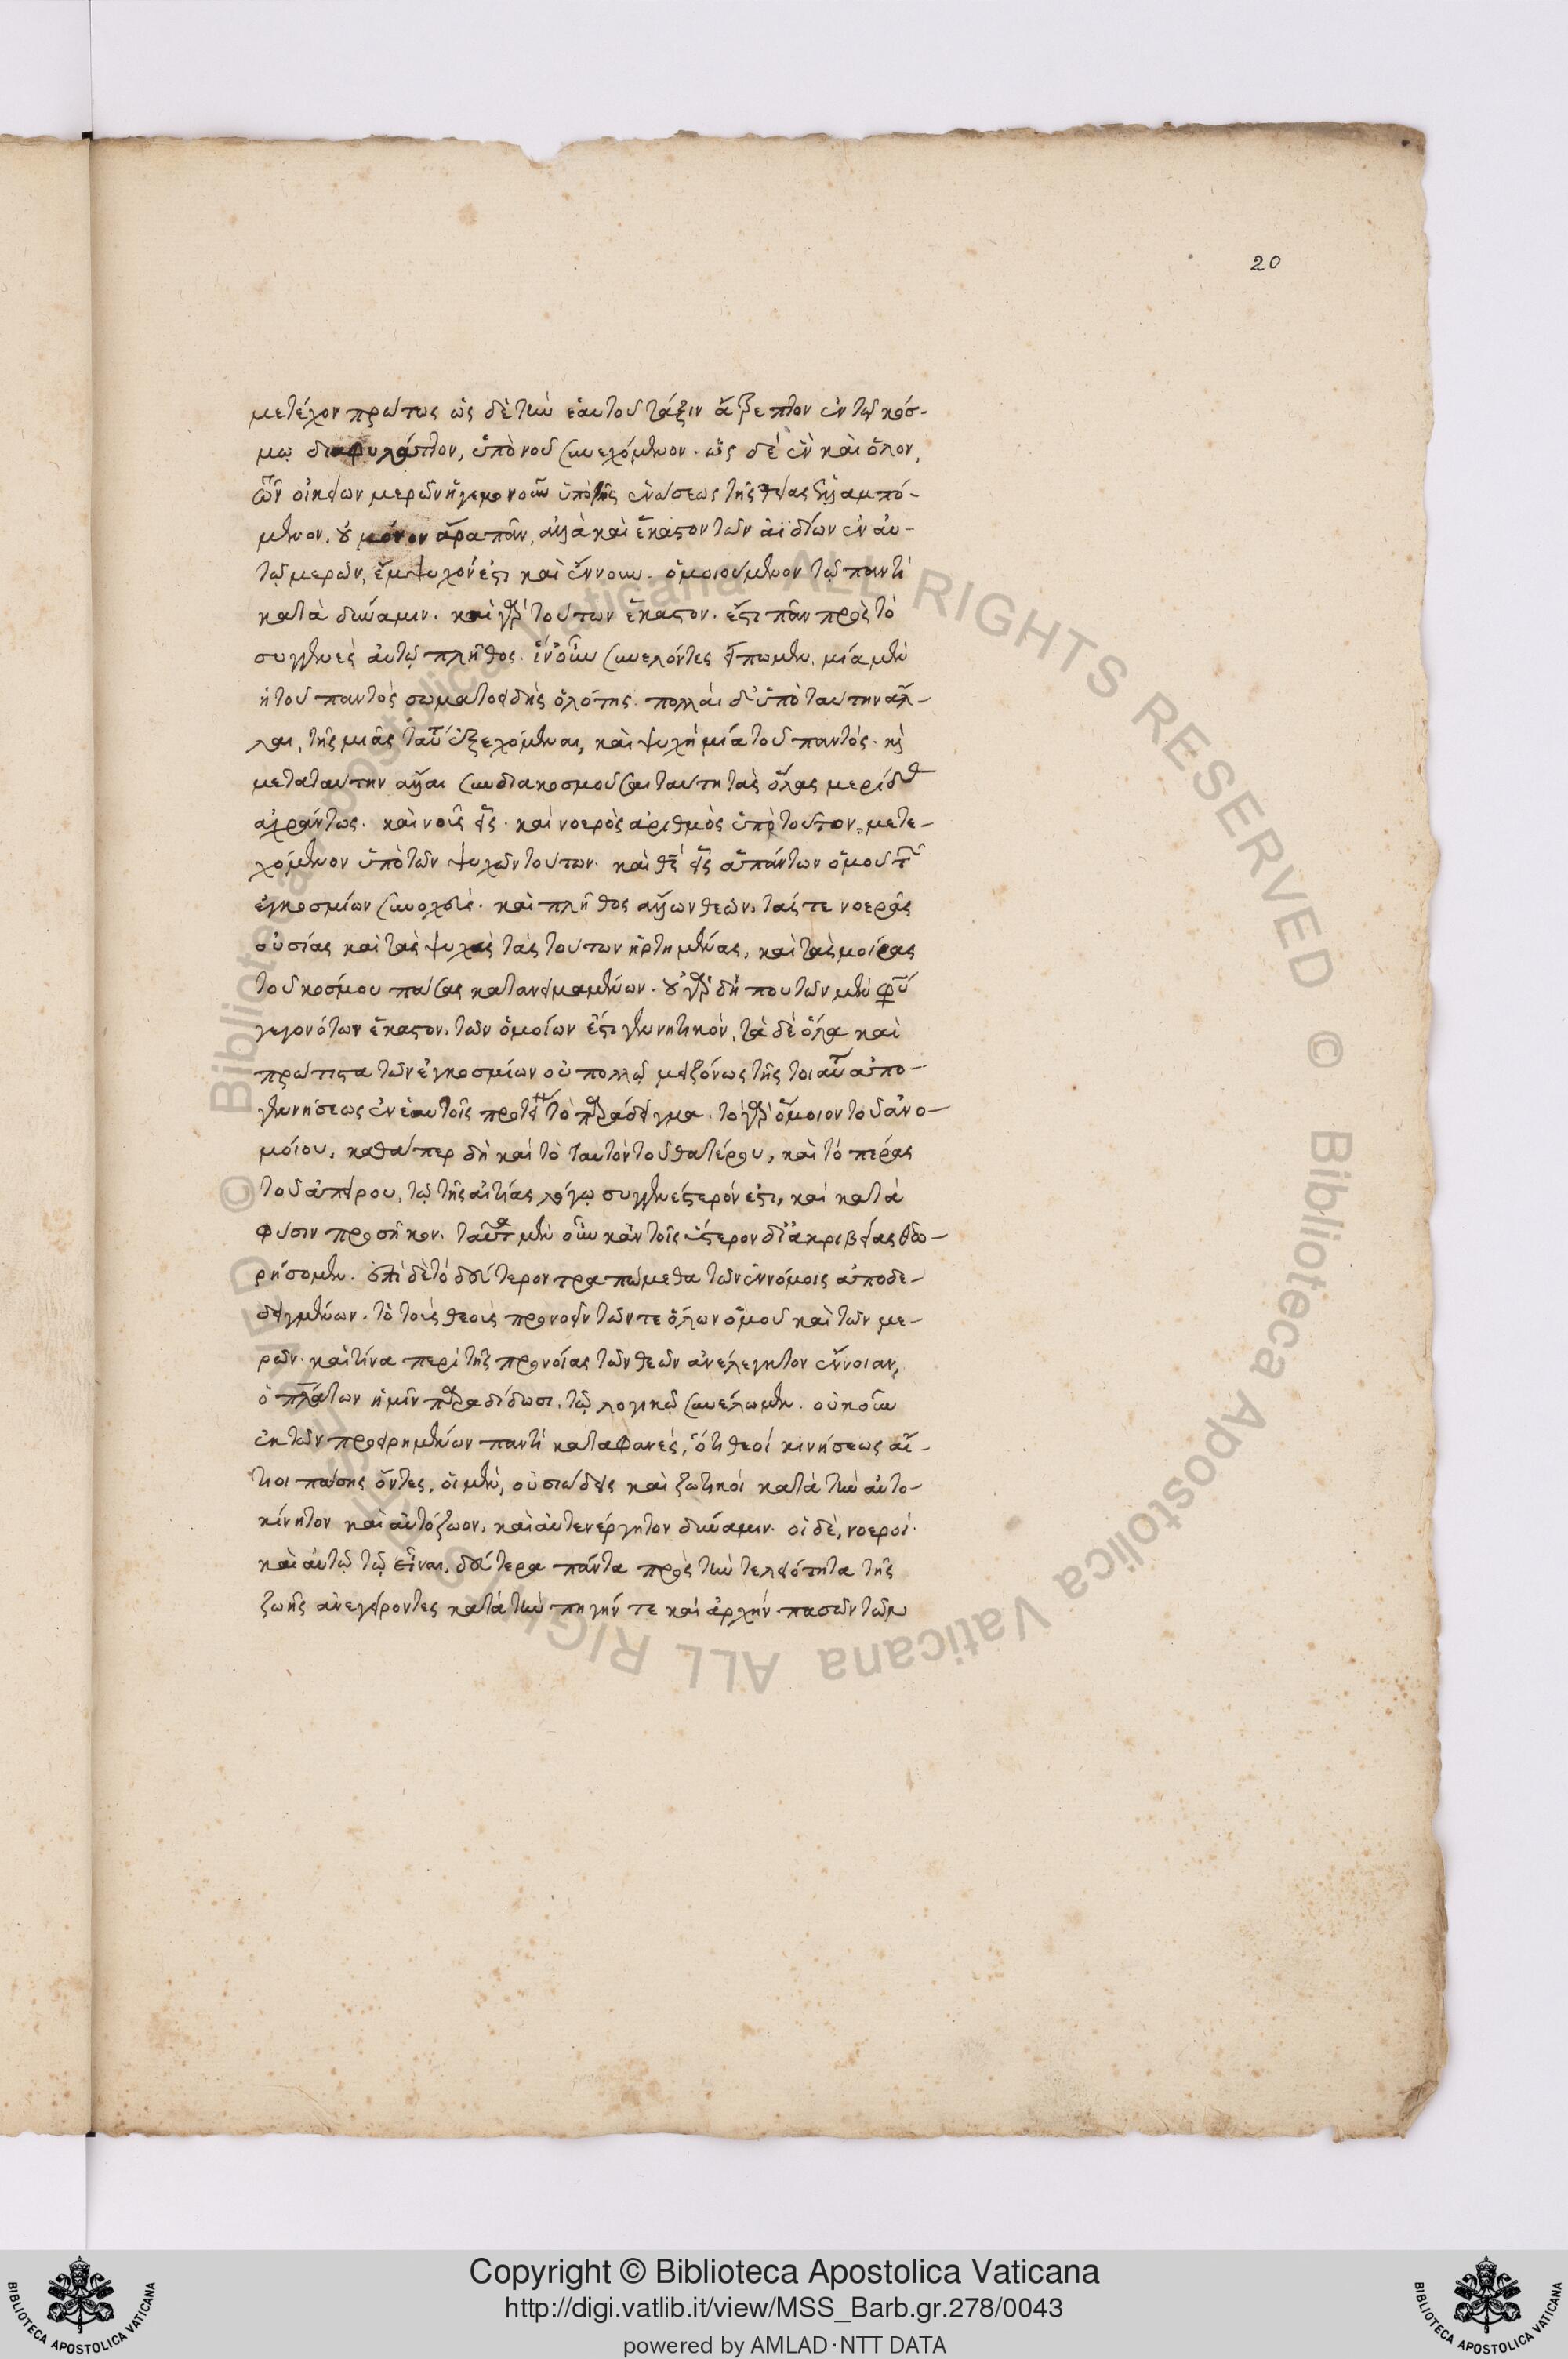 20
μετέχον πρώτως ὡς δὲ τὴν ἑαυτοῦ τάξιν ἄτρεπτον ἐν τῷ κόσ-
μῳ διαφυλάττον, ὑπὸ νοῦ συνεχόμενον. ὡς δὲ ἓν καὶ ὅλον,
τῶν οἰκείων μερῶν ἡγεμονοῦν ὑπὸ τῆς ἑνώσεως τῆς θείας ἐλλαμπό-
μενον. οὐ μόνον ἄρα πᾶν, ἀλλὰ καὶ ἕκαστον τῶν ἀϊδίων ἐν αὐ-
τῷ μερῶν, ἔμψυχόν ἐστι καὶ ἔννουν. ὁμοιούμενον τῷ παντὶ
κατὰ δύναμιν. καὶ γὰρ τούτων ἕκαστον. ἔστι πᾶν πρὸς τὸ
συγγενὲς αὐτῷ πλῆθος. ἵν' οὖν συνελόντες εἴπωμεν. μία μὲν
ἡ τοῦ παντὸς σωματοειδὴς ὁλότης. πολλαὶ δ' ὑπὸ ταύτην ἄλ-
λαι, τῆς μιᾶς ταύτης ἐξεχόμεναι, καὶ ψυχὴ μία τοῦ παντός. καὶ
μετὰ ταύτην ἄλλαι συνδιακοσμοῦσαι ταύτῃ τὰς ὅλας μερίδας
ἀχράντως. καὶ νοῦς εἷς. καὶ νοερὸς ἀριθμὸς ὑπὸ τοῦτον, μετε-
χόμενον ὑπὸ τῶν ψυχῶν τούτων. καὶ θεὸς εἷς ἁπάντων ὁμοῦ τῶν
ἐγκοσμίων συνοχεύς. καὶ πλῆθος ἄλλων θεῶν, τάς τε νοερὰς
οὐσίας καὶ τὰς ψυχὰς τὰς τούτων ἠρτημένας, καὶ τὰς μοίρας
τοῦ κόσμου πάσας κατανειμαμένων. οὐ γὰρ δή που τῶν μὲν φύσει
γεγονότων ἕκαστον, τῶν ὁμοίων ἐστὶ γεννητικόν, τὰ δὲ ὅλα καὶ
πρώτιστα τῶν ἐγκοσμίων οὐ πολλῷ μειζόνως τῆς τοιαύτης ἀπο-
γεννήσεως ἐν ἑαυτοῖς προτείνει τὸ παράδειγμα. τὸ γὰρ ὅμοιον τοῦ ἀνο-
μοίου, καθάπερ δὴ καὶ τὸ ταυτὸν τοῦ θατέρου, καὶ τὸ πέρας
τοῦ ἀπείρου, τῷ τῆς αἰτίας λόγῳ συγγενέστερόν ἐστι, καὶ κατὰ
φύσιν προσῆκον. ταῦτα μὲν οὖν κἀν τοῖς ὕστερον δι' ἀκριβείας θεω-
ρήσομεν. ἐπὶ δὲ τὸ δεύτερον τραπώμεθα τῶν ἐν νόμοις ἀποδε-
δειγμένων. τὸ τοὺς θεοὺς προνοεῖν τῶν τε ὅλων ὁμοῦ καὶ τῶν με-
ρῶν. καὶ τίνα περὶ τῆς προνοίας τῶν θεῶν ἀνέλεγκτον ἔννοιαν,
ὁ πλάτων ἡμῖν παραδίδωσι. τῷ λογικῷ συνέλωμεν. οὐκοῦν
ἐκ τῶν προειρημένων παντὶ καταφανές, ὅτι θεοὶ κινήσεως αἴ-
τιοι πάσης ὄντες, οἱ μὲν, οὐσιώδεις καὶ ζωτικοὶ κατὰ τὴν αὐτο-
κίνητον καὶ αὐτόζωον, καὶ αὐτενέργητον δύναμιν. οἱ δὲ, νοεροί.
καὶ αὐτῷ τῷ εἶναι, δεύτερα πάντα πρὸς τὴν τελειότητα τῆς
ζωῆς ἀνεγείροντες κατὰ τὴν πηγήν τε καὶ ἀρχὴν πασῶν τῶν
Copyright © Biblioteca Apostolica Vaticana
http://digi.vatlib.it/view/MSS_Barb.gr.278/0043
powered by AMLAD·NTT DATA
BIBLIOTECA APOSTOLICA VATICANA
BIBLIOTECA APOSTOLICA VATICANA